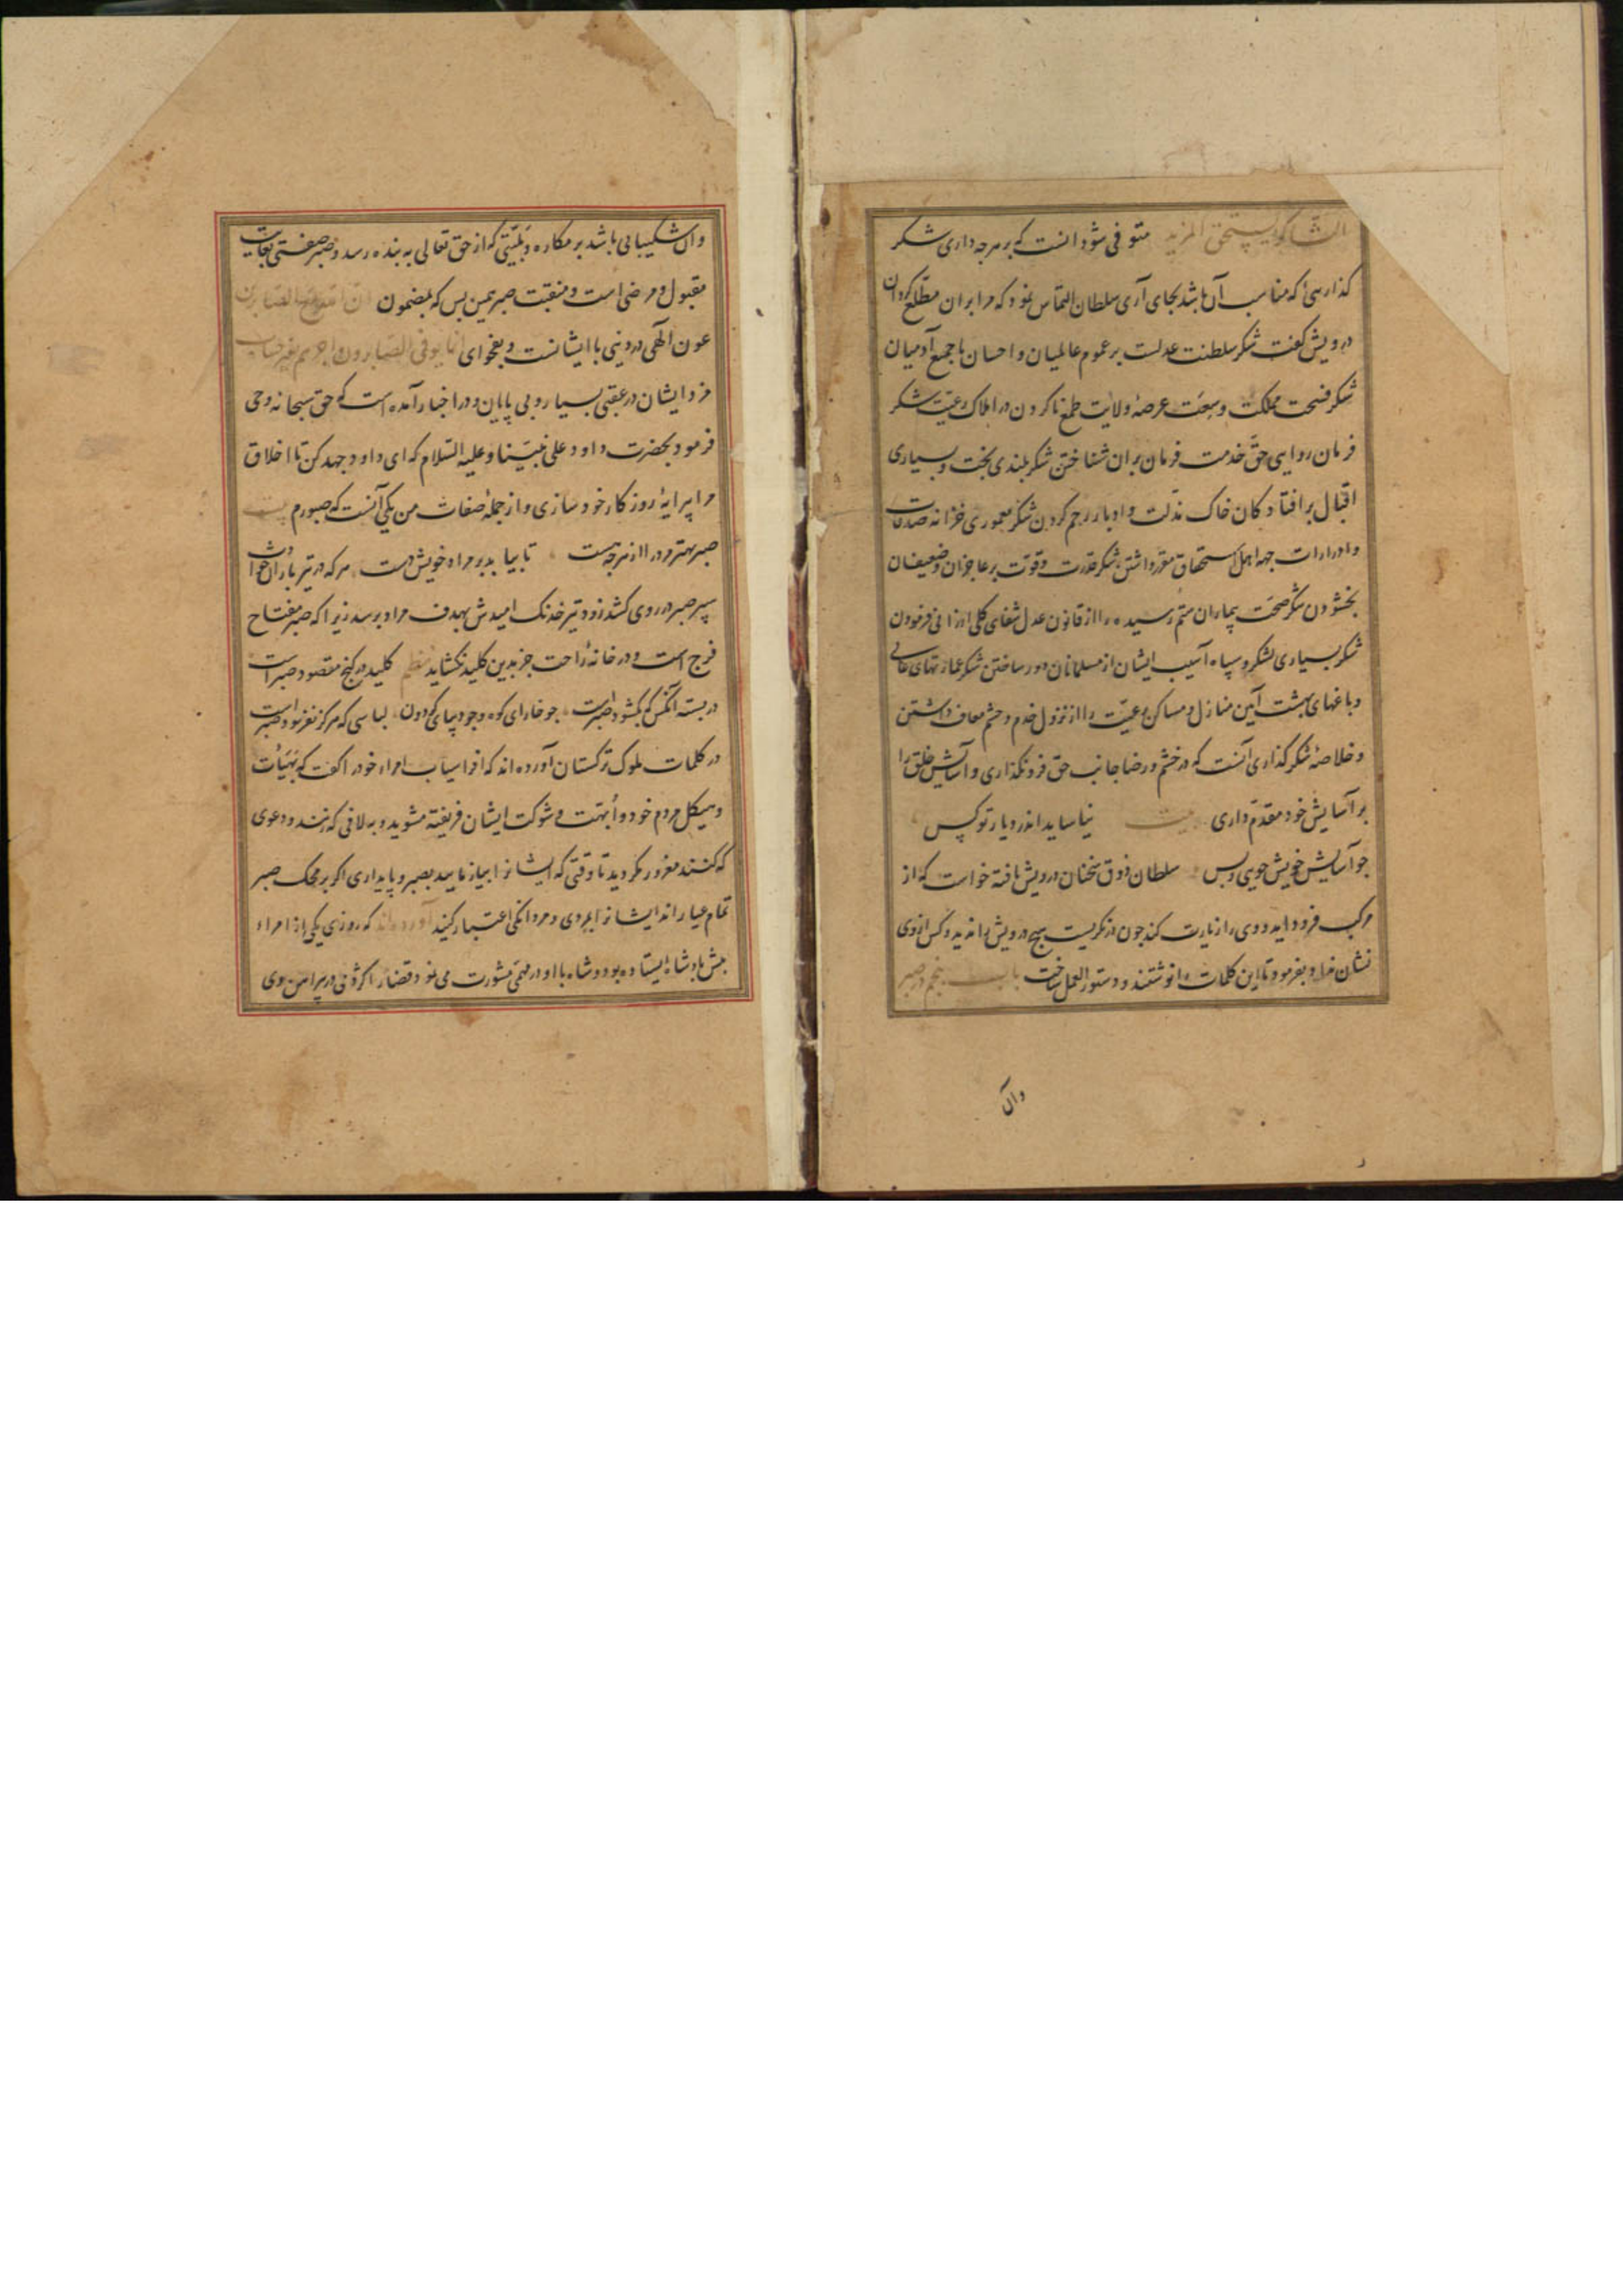 الشاکر یستحق المزید متوفی شود انست که بر هرجه داری شکر
کذاری که مناسب آن باشد بجای آری سلطان التماس نمود که مرا بران مطلع کردان
درویش کفت شکر سلطنت عدلست بر عموم عالمیان و احسان با جمیع آدمیان
شکر فسحت مملکت و سعت عرصهٔ ولایت طمع نا کردن در املاک رعیت شکر
فرمان روایی حق خدمت فرمان بران شناختن شکر بلندی بخت و بسیاری
اقبال بر افتادکان خاک مذلت و ادبار رحم کردن شکر معموری خزانه صدقات
و ادرارات جهه اهل استحقاق مقرر داشتن شکر قدرت و قوت بر عاجزان و ضعیفان
بخشودن شکر صحت بیماران ستم رسیده را از قانون عدل شفای کلی ارزانی فرمودن
شکر بسیاری لشکر و سپاه آسیب ایشان از مسلمانان دور ساختن شکر عمارتهای عالی
و باغهای بهشت آیین منازل و مساکن رعیت را از نزول خدم و حشم معاف داشتن
و خلاصهٔ شکر کذاری آنست که در خشم و رضا جانب حق فرو نکذاری و آسایش خلق را
بر آسایش خود مقدم داری بیت نیاساید اندر دیار تو کس
جو آسایش خویش جویی و بس سلطان ذوق سخنان درویش یافته خواست که از
مرکب فرود اید و وی را زیارت کند جون در نکریست هیچ درویش را ندید و کس از وی
نشان نداد بفرمود تا این کلمات را نوشتند و دستور العمل ساخت باب پنجم در صبر
وآن
وآن شکیبایی باشد بر مکاره و بلیتی که از حق تعالی به بنده رسد و صبر صفتی بغایت
مقبول و مرضی است و منقبت صبر همین بس که بمضمون ان الله مع الصابرین
عون الهی در دینی با ایشانست و بفحوای انما یوفی الصابرون اجرهم بغیر حساب
مزد ایشان در عقبی بسیار و بی پایان و در اخبار آمده است که حق سبحانه وحی
فرمود بحضرت داود علی نبینا و علیه السلام که ای داود جهد کن تا اخلاق
مرا پیرایهٔ روزکار خود سازی و از جملهٔ صفات من یکی آنست که صبورم بیت
صبر بهتر مرد را از هرجه هست تا بیابد بر مراد خویش دست هر که در تیر باران حوادث
سپر صبر در روی کشد زود تیر خدنک امیدش بهدف مراد برسد زیرا که صبر مفتاح
فرج است و در خانهٔ راحت جز بدین کلید نکشاید نظم کلید در کنج مقصود صبرست
در بسته آنکس که بکشود صبرست جو خارای کوه وجود پیای کردون لباسی که هرکز نفرسود صبرست
در کلمات ملوک ترکستان آورده اند که افراسیاب امراء خود را کفت که بهیأت
و هیکل مردم خود و اُبهت و شوکت ایشان فریفته مشوید و به لافی که زنند و دعوی
که کنند مغرور مکردید تا وقتی که ایشانرا بیازمایید بصبر و پایداری اکر بر محک صبر
تمام عیار اند ایشانرا بمردی و مردانکی اعتبار کنید آورده اند که روزی یکی از امراء
پیش پادشاه ایستاده بود و شاه با او در مهمی مشورت می نمود قضا را کژدمی در پیراهن وی